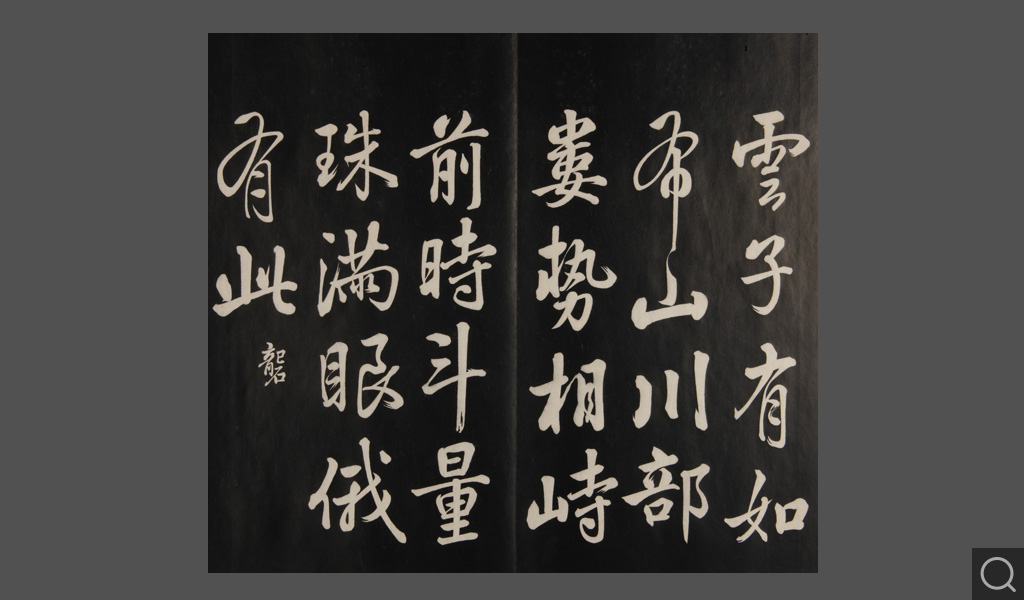 雲子有如
布山川部
婁势相峙
前時斗量
珠满眼俄
有此